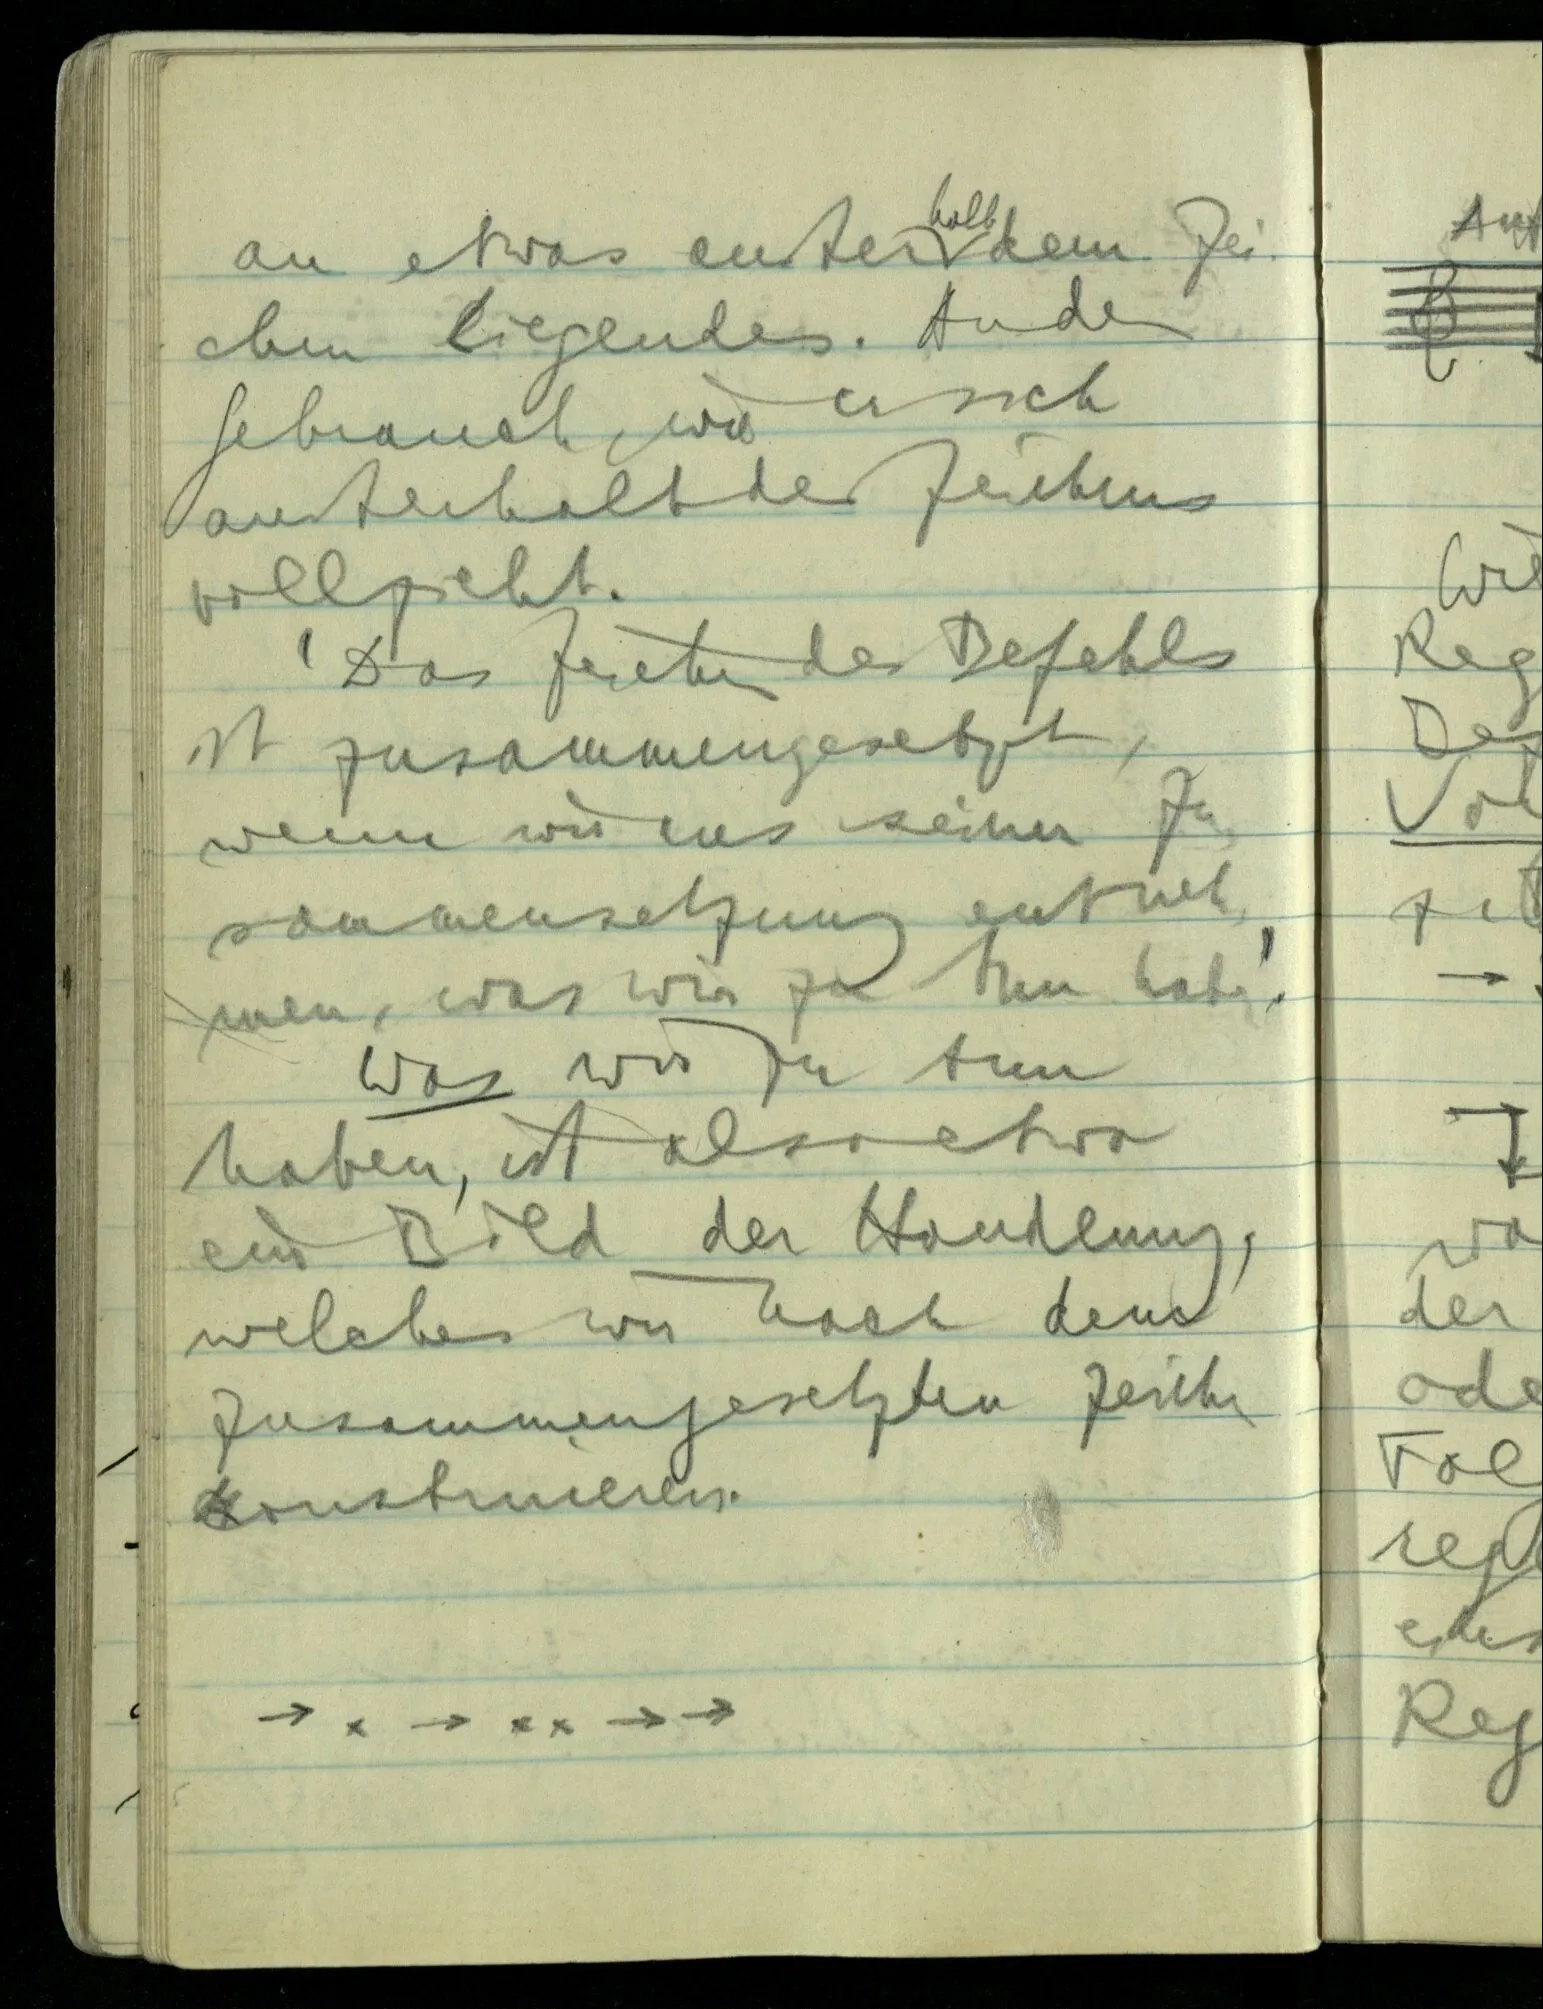 an etwas außerhalb dem Zei-
chen liegendes. An den
Gebrauch, wie er sich
außerhalb des Zeichens
vollzieht.
'Das Zeichen des Befehls
ist zusammengesetzt,
wenn wir aus seiner Zu-
sammensetzung entneh-
men, was wir zu tun haben'.
Was wir zu tun
haben, ist also etwa
ein Bild der Handlung,
welches wir nach dem
zusammengesetzten Zeichen
konstruieren.
→ x → x x → →
Reg
der
ode
Reg